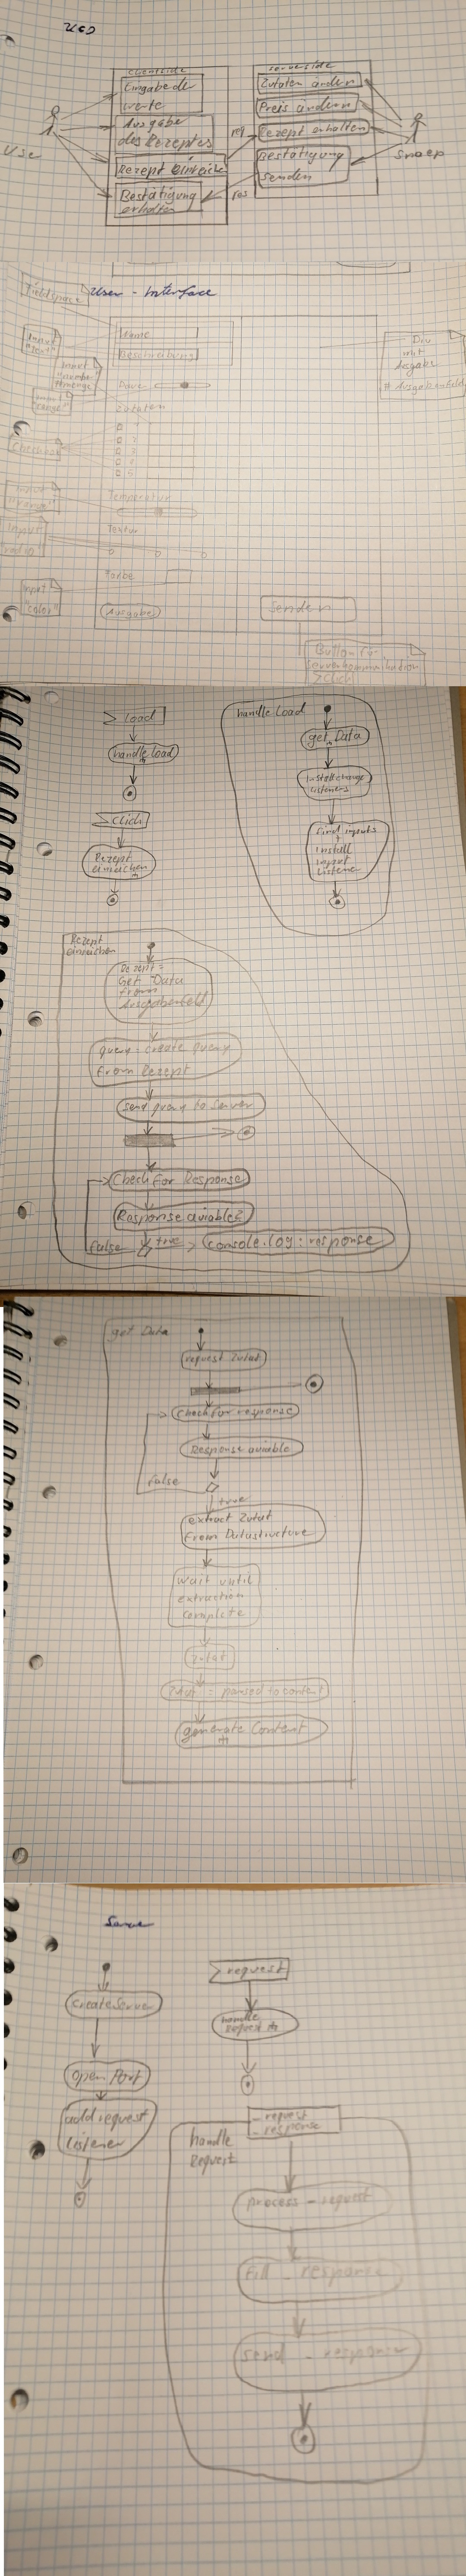 UCD
clientside
Eingabe der
werte
Ausgabe
des Rezeptes
Rezept einreichen
Bestätigung
erhalten
User
serverside
Zutaten ändern
Preis ändern
Rezept erhalten
Bestätigung
senden
req
res
User-Interface
Fieldspace
Name
Beschreibung
Input
"text"
Input
"number"
Zutaten
1
2
3
4
5
Temperatur
Textur
Input
"radio"
Farbe
Input
"color"
Ausgabe
Senden
Div
mit
Ausgabe
# Ausgabenfeld
Button für
Serverkommunikation
>click
load
handle load
click
Rezept
einreichen
handle Load
get Data
install change
listeners
find inputs
+
install
input
listener
Rezept
einreichen
Rezept =
Get Data
from
Ausgabenfeld
query = create query
from Rezept
send query to Server
Check for Response
Response aviable?
false
true
console.log: response
get Data
request Zutat
Check for response
Response aviable
false
true
extract Zutat
from Datastructure
wait until
extraction
complete
Zutat
Zutat = parsed to content
generate Content
Server
create Server
open Port
add request
Listener
request
handle
Request
_request
_response
handle
Request
process _request
fill _response
send _response